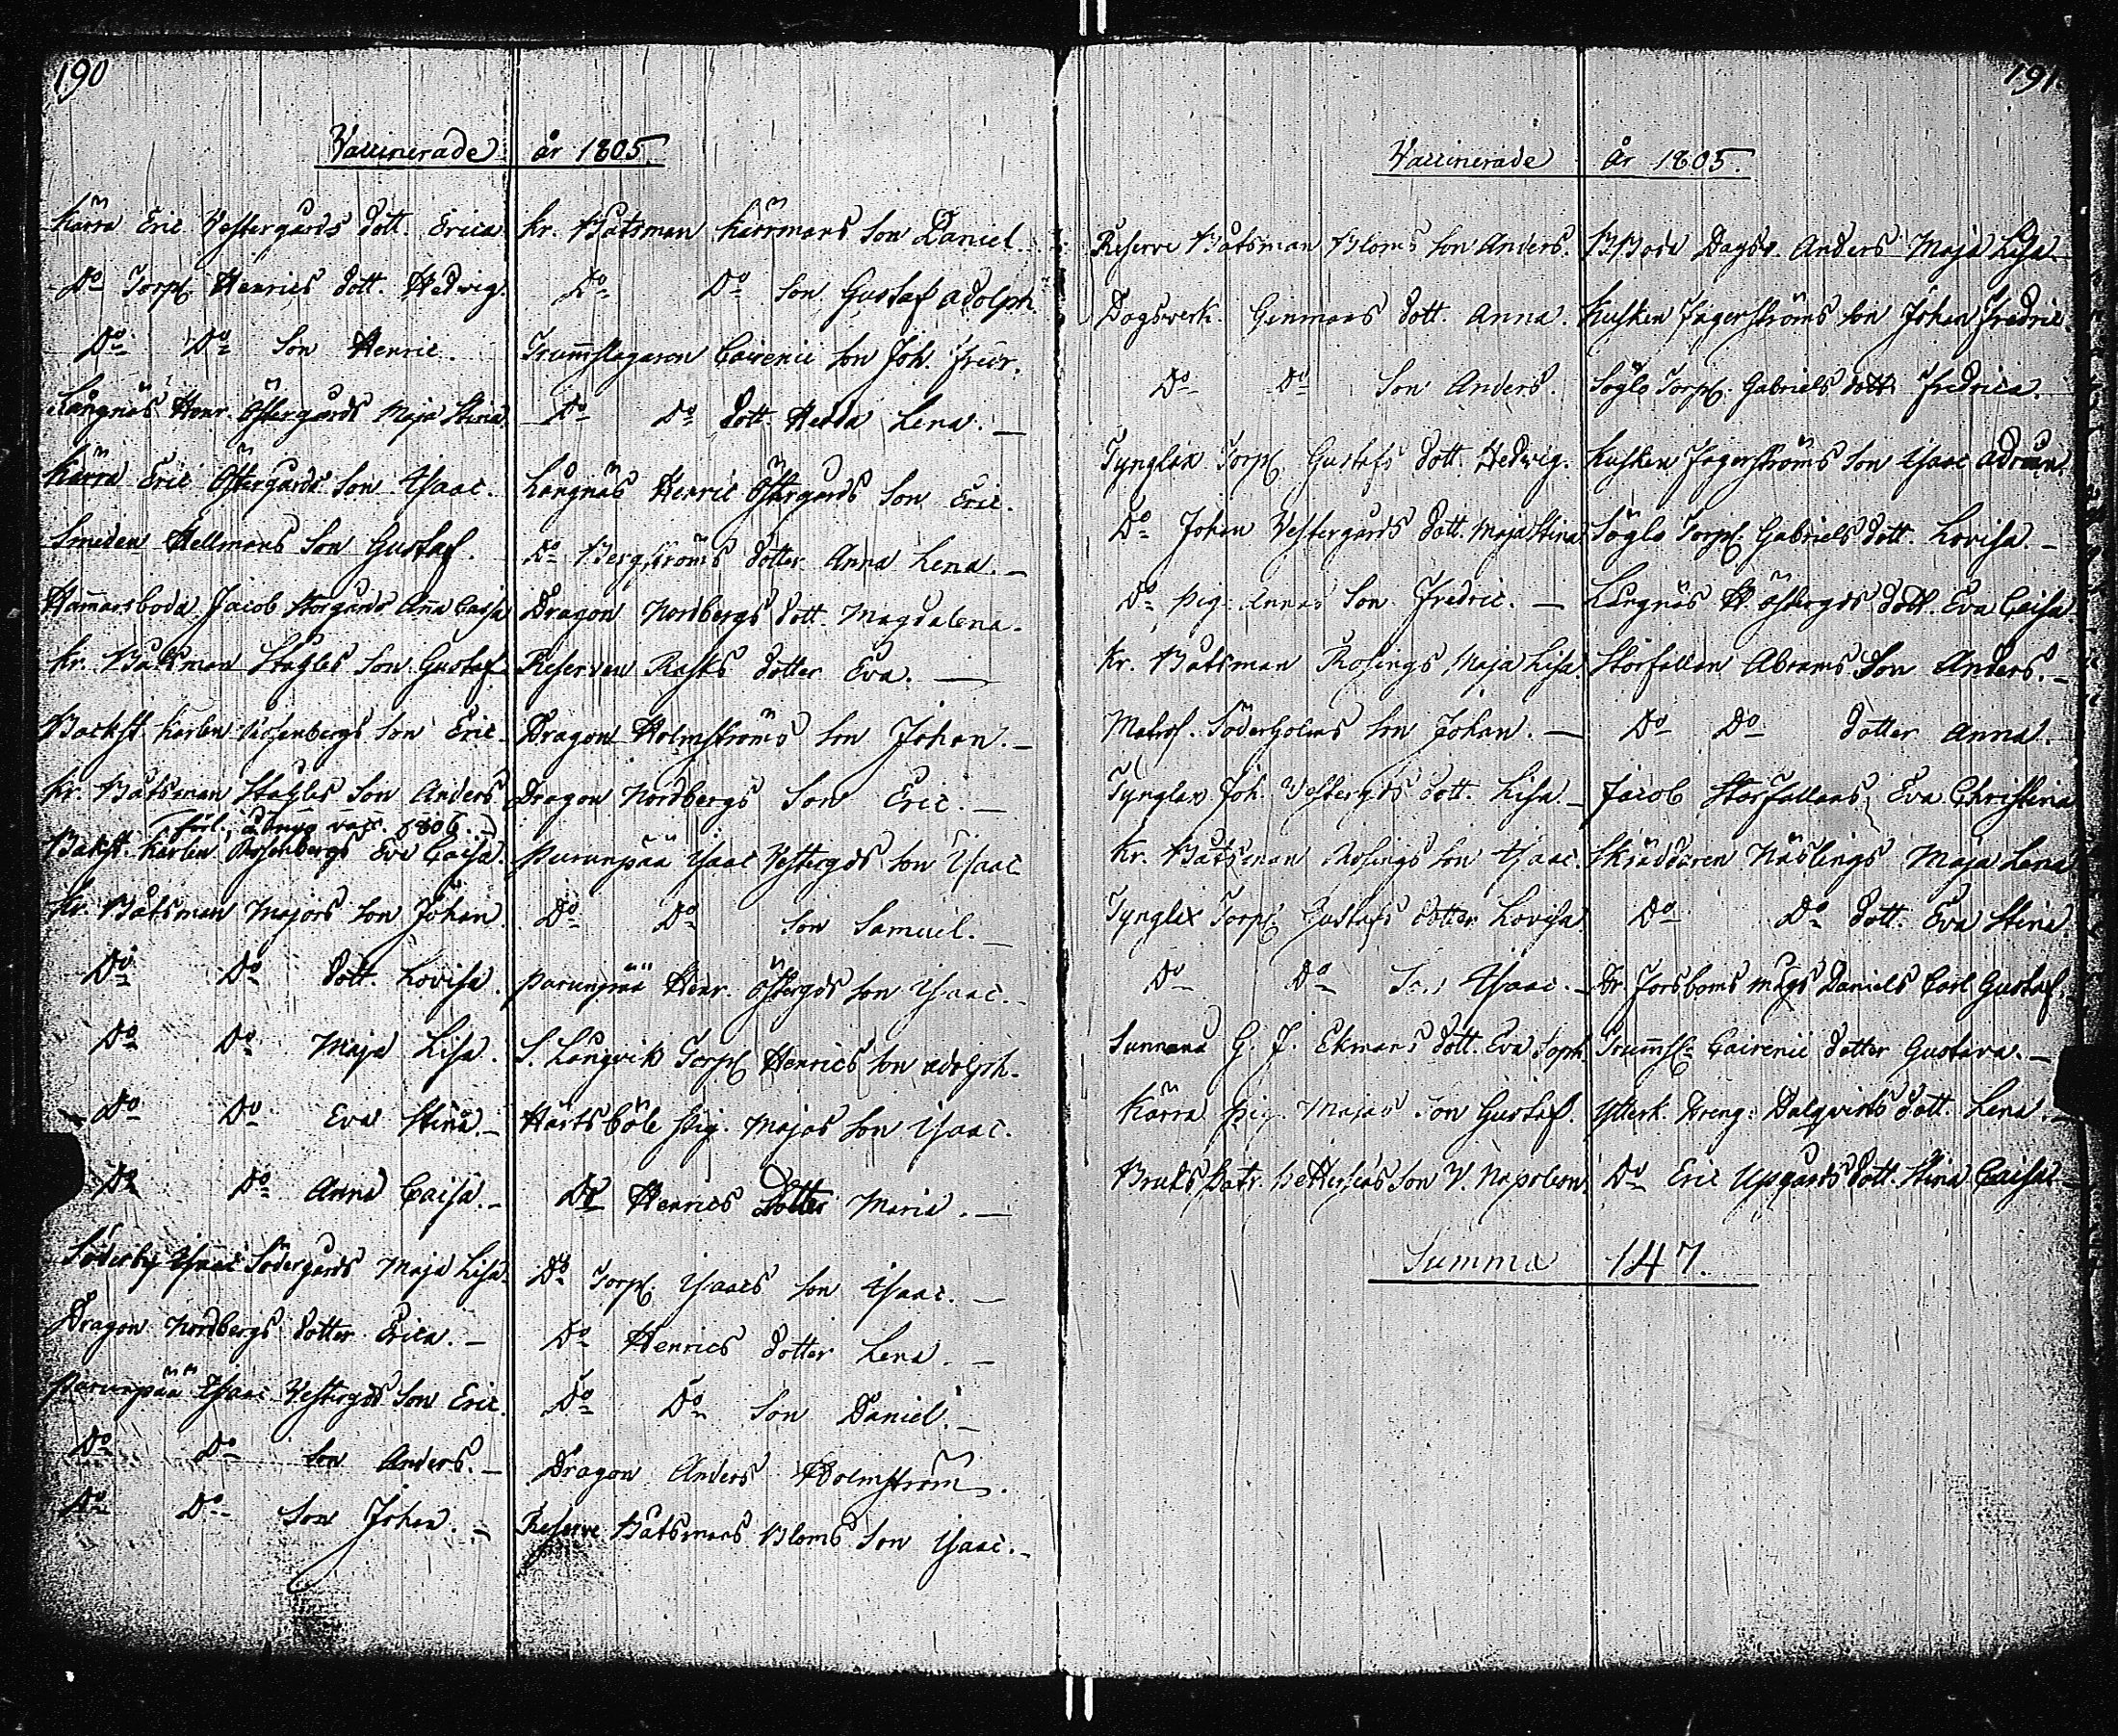 190
Vaccinerade år 1805.
Kärra Eric Vestergårds dott. Erica
Do Torp. Henrics dott. Hedwig.
Do Do Son Henric.
Långnäs Henr. Östergårds Maja Stina.
Kärra Eric Östergårds Son Isaac.
Smeden Hellmans Son Gustaf.
Hamarsboda Jacob Storgårds Anna Caisa
Kr. Båtsman Stagles Son Gustaf
Backst. Karlen Rosenbergs Son Eric
Kr. Båtsman Stagles Son Anders
förl. å nyo vac. 1806.
Backst. Karlen Rosenbergs Eva Caisa.
Kr. Båtsman Majors Son Johan
Do Do dott. Lovisa.
Do Do Maja Lisa.
Do Do Eva Stina.
Do Do Anna Caisa.
Söderby Isaac Södergårds Maja Lisa.
Dragon Nordbergs dotter Erica.
Purunpää Isaac Vestergds Son Eric.
Do Do Son Anders.
Do Do Son Johan.
Kr. Båtsman Kärrmans Son Daniel.
Do Do Son Gustaf Adolph.
Trumslagaren Cairenii Son Joh. Fredr.
Do Do dott. Hedda Lena.
Långnäs Henric Östergårds Son Eric.
Do Bergströms dotter Anna Lena.
Dragon Nordbergs dott. Magdalena.
Reserven Rasks dotter Eva.
Dragon Holmströms Son Johan.
Dragon Nordbergs Son Eric.
Purunpää Isaac Vestergds Son Isaac
Do Do Son Samuel.
Purunpää Henr. Östergds Son Isaac.
S. Långvik Torp. Henrics Son Adolph.
Härtsböle Pig. Majas Son Isaac.
Do Henrics Dotter Maria.
Do Torp. Isaacs Son Isaac.
Do Henrics dotter Lena.
Do Do Son Daniel.
Dragon Anders Holmström.
Reserve Båtsmans Bloms Son Isaac.
191
Vaccinerade år 1805.
Reserve Båtsman Bloms Son Anders.
Dagsverk. Genmans dott. Anna.
Do Do Son Anders.
Tynglax Torp. Gustafs dott. Hedwig.
Do Johan Vestergårds dott. Maja Stina
Do Pig. Annas Son Fredric.
Kr. Båtsman Rosings Maja Lisa.
Matros. Söderholms Son Johan.
Tynglax Joh. Vestergds dott. Lisa.
Kr. Båtsman Rosings Son Isaac.
Tynglax Torp. Gustafs dotter Lovisa
Do Do Son Isaac.
Sunnanå G. J. Ekmans dott. Eva Soph.
Kärra Pig. Majas Son Gustaf.
Bruks Patr. Son V. Napoleon.
Dagsv. Anders Maja Lisa
Kusken Jägerströms Son Johan Fredric
Söglö Torp. Gabriels dott. Fredrica.
Kusken Jägerströms Son Isaac Adrian.
Söglö Torp. Gabriels dott. Lovisa.
Långnäs H. Östergds dott. Eva Caisa.
Storfallan Abrams Son Anders.
Do Do dotter Anna.
Jacob Storfallans Eva Christina
Skräddaren Näslings Maja Lena
Do Do dott. Eva Stina
Dr. Forsboms mågs Daniels Carl Gustaf.
Trumsl. Cairenii dotter Gustava.
Ytterk. Dreng. Dalqvists dott. Lena.
Do Eric Upgårds dott. Stina Caisa
Summa 147.